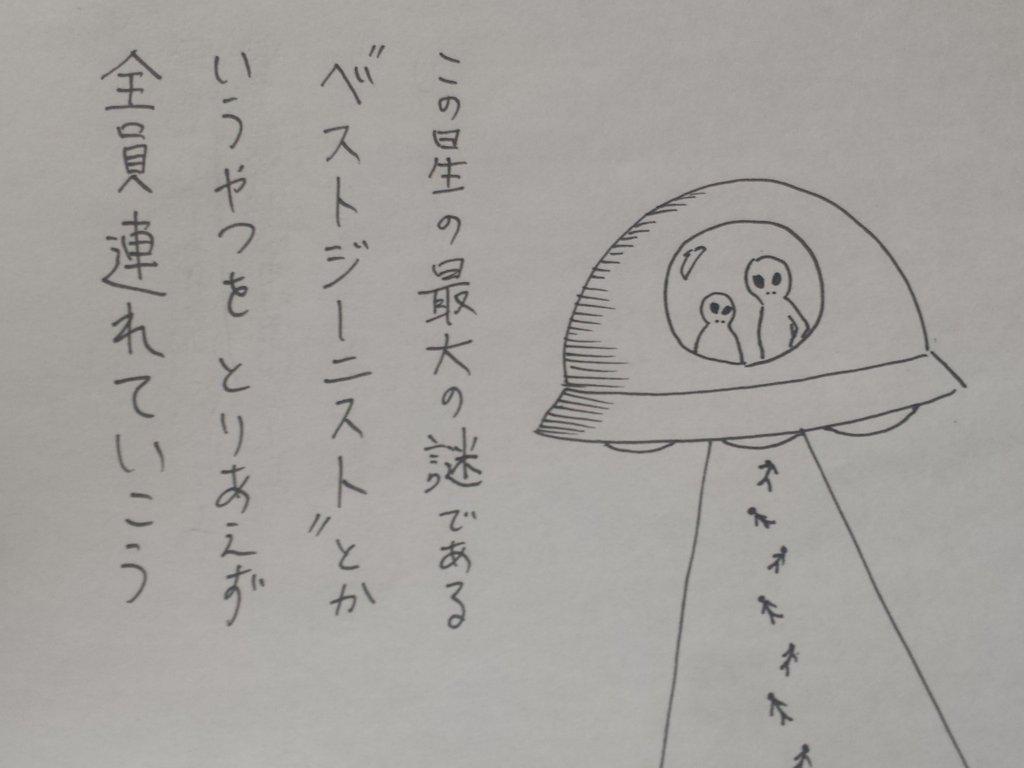 この星の最大の謎である
〝ベストジーニスト〟とか
いうやつをとりあえず
全員連れていこう